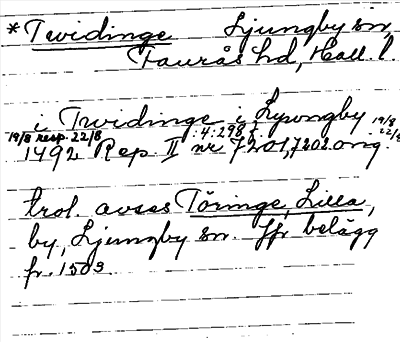 *Twidinge Ljungby sn,
Faurås hd, Hall. l.
i Twidinge i Lywngby 19/8 22/8
19/8 resp. 22/8 :4:298 f.
1492 Rep. II nr 7201,7202 orig.
trol. avses Töringe, Lilla,
by, Ljungby sn. Jfr belägg
fr. 1503